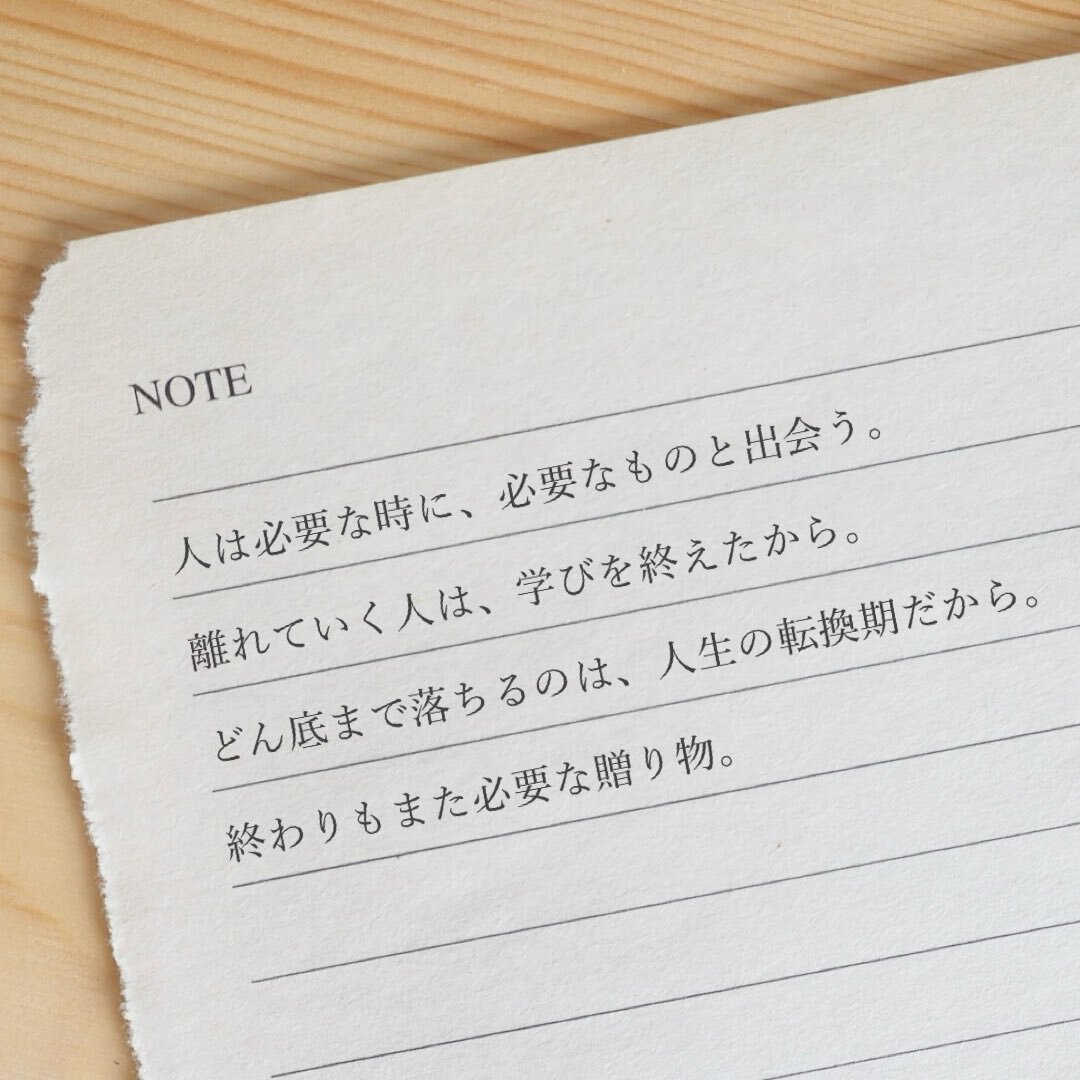 NOTE
人は必要な時に、必要なものと出会う。
離れていく人は、学びを終えたから。
どん底まで落ちるのは、人生の転換期だから。
終わりもまた必要な贈り物。